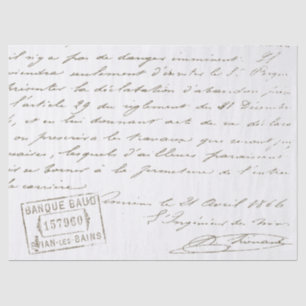 il n'y a pas de danger imminent. Il
viendra seulement d'inviter le S.
présenter la déclaration d'abandon
l'article 29 du règlement du 31 Décembre
et, en lui donnant acte de sa déclara
on prescrira les travaux que
naires, lesquels d'ailleurs paraissent
se borner à la fermeture de l'entrée
la carrière
le 21 Avril 1866
L'Ingénieur des
BANQUE BAUD
157960
EVIAN-LES-BAINS